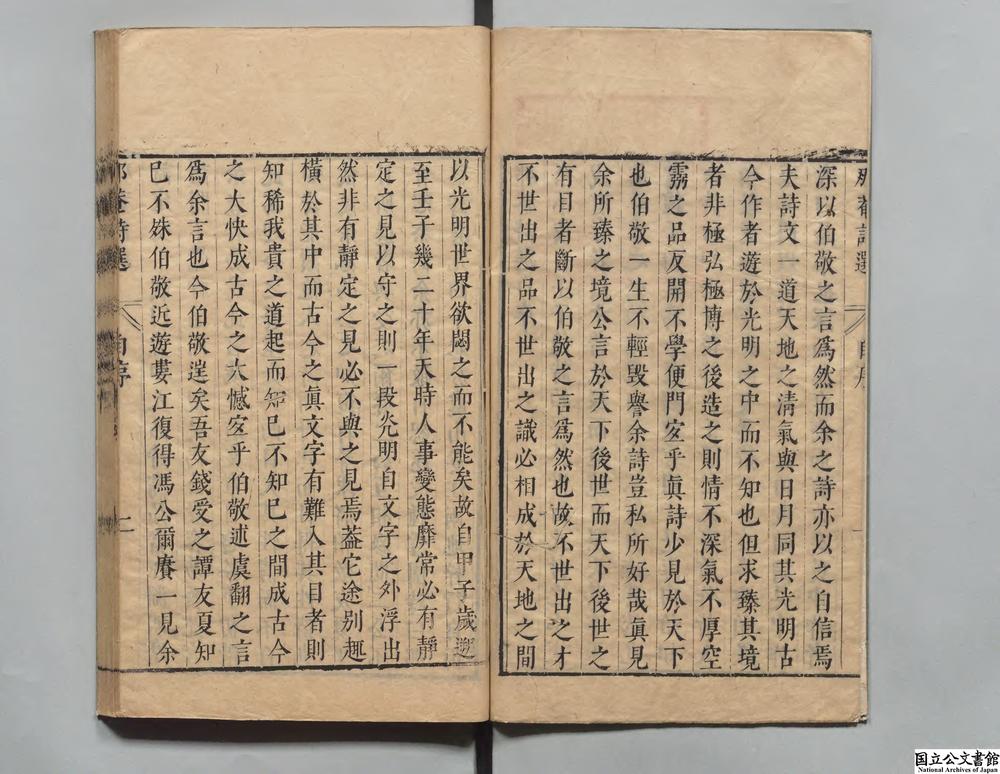 深以伯敬之言爲然而余之詩亦以之自信焉
夫詩文一道天地之清氣與日月同其光明古
今作者遊於光明之中而不知也但求臻其境
者非極弘極博之後造之則情不深氣不厚空
霧之品反開不學便門宜乎眞詩少見於天下
也伯敬一生不輕毀譽余詩豈私所好哉眞見
余所臻之境公言於天下後世而天下後世之
有目者斷以伯敬之言爲然也故不世出之才
不世出之品不世出之識必相成於天地之間
以光明世界欲閟之而不能矣故自甲子歲遡
至壬子幾二十年天時人事變態靡常必有靜
定之見以守之則一段光明自文字之外浮出
然非有靜定之見必不與之見焉蓋它途别趣
橫於其中而古今之眞文字有難入其目者則
知稀我貴之道起而知已不知已之間成古今
之大快成古今之大憾宜乎伯敬述虞翻之言
爲余言也今伯敬逞矣吾友錢受之譚友夏知
已不殊伯敬近遊婁江復得馮公爾賡一見余
菴詩選
自序
二
国立公文書館
National Archives of Japan